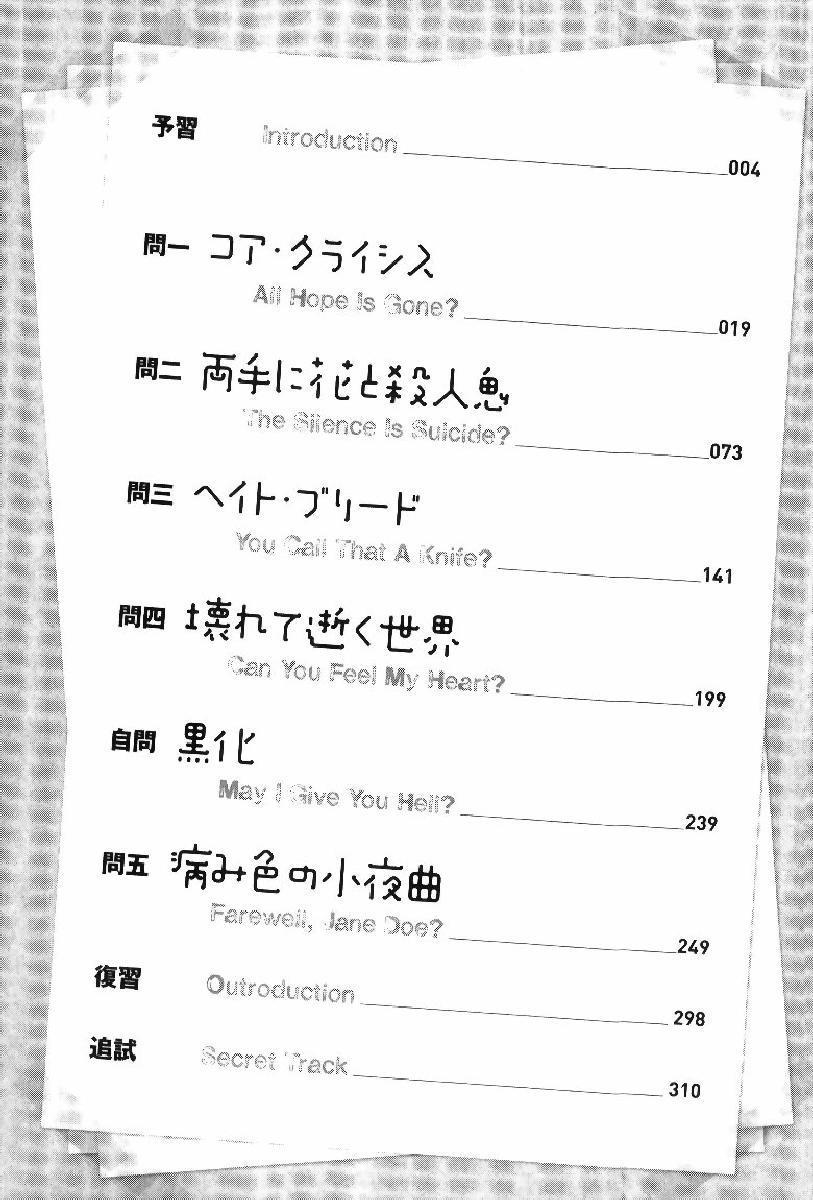 予習 Introduction 004
問一 コア・クライシス
All Hope Is Gone? 019
問二 両手に花と殺人鬼
The Silence Is Suicide? 073
問三 ヘイト・ブリード
You Call That A Knife? 141
問四 壊れて逝く世界
Can You Feel My Heart? 199
自問 黒化
May I Give You Hell? 239
問五 病み色の小夜曲
Farewell, Jane Doe? 249
復習 Outroduction 298
追試 Secret Track 310